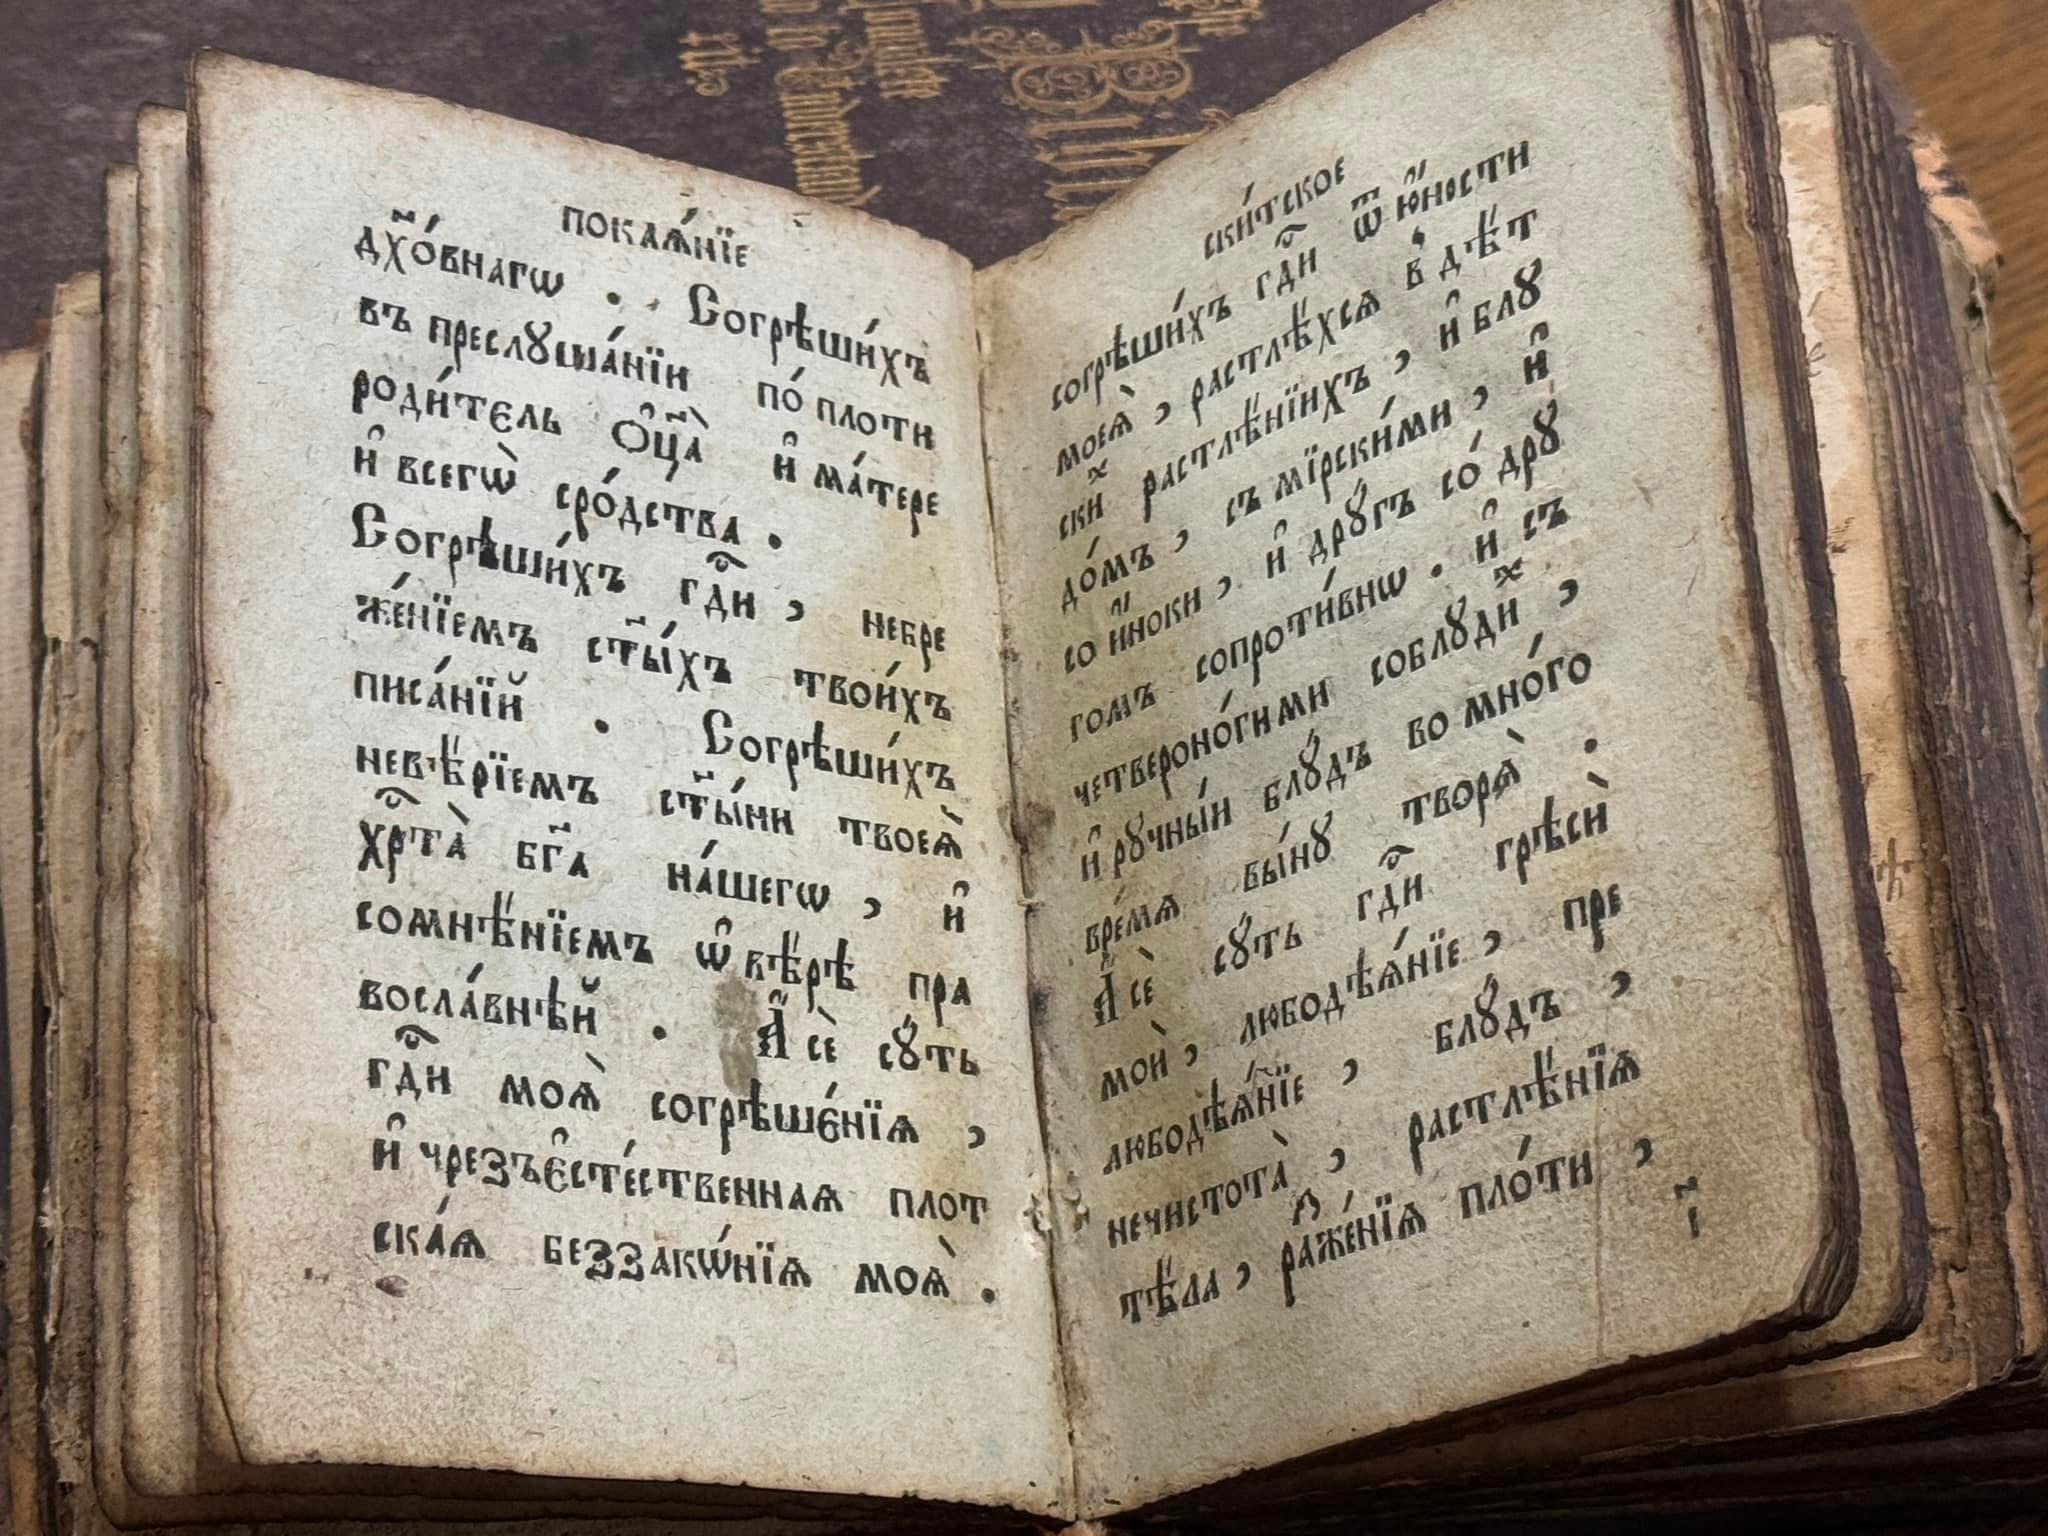 покаѧ́нїе
дх҃о́внагѡ . Согрѣши́хъ
въ преслꙋша́нїи по́ плоти
роди́тєль Ѻц҃а̀ и҆ ма́тере
и҆ всегѡ̀ сро́дства .
Согрѣши́хъ гдⷭ҇и , небре
же́нїемъ ст҃ы́хъ твои́хъ
писа́нїй . Согрѣши́хъ
невѣ́рїемъ ст҃ы́ни твоеѧ̀
хрⷭ҇та̀ бг҃а на́шегѡ , и҆
сомнѣ́нїемъ ѡ҆ вѣ́рѣ пра
восла́внѣй . А҆ сѐ сꙋ́ть
гдⷭ҇и моѧ̀ согрѣшє́нїѧ ,
и҆ чрезъє҆сте́ственнаѧ плот
ска́ѧ беззакѡ́нїѧ моѧ̀ .
ски́тское
согрѣши́хъ гдⷭ҇и ѿ ю҆́ности
моеѧ̀ , растлѣ́хсѧ в̾ дѣ́т
скиⷯ растлѣ́нїихъ , и҆ блꙋ
до́мъ , съ мїрски́ми , и҆
со и҆́ноки , и҆ дрꙋ́гъ со́ дрꙋ
гомъ сопроти́внѡ . и҆ съ
четвероно́гими соблꙋдиⷯ ,
и҆ рꙋчны́й блꙋ́дъ во мно́го
вре́мѧ бы́нꙋ творѧ̀ .
А҆ сѐ сꙋ́ть гдⷭ҇и грѣси̂
мои̂ , любодѣѧ́нїе , пре
любодѣѧ́нїе , блꙋ́дъ ,
нечистота̀ , растлѣ́нїѧ
тѣ́ла , раⷥже́нїѧ пло́ти ,
і҃